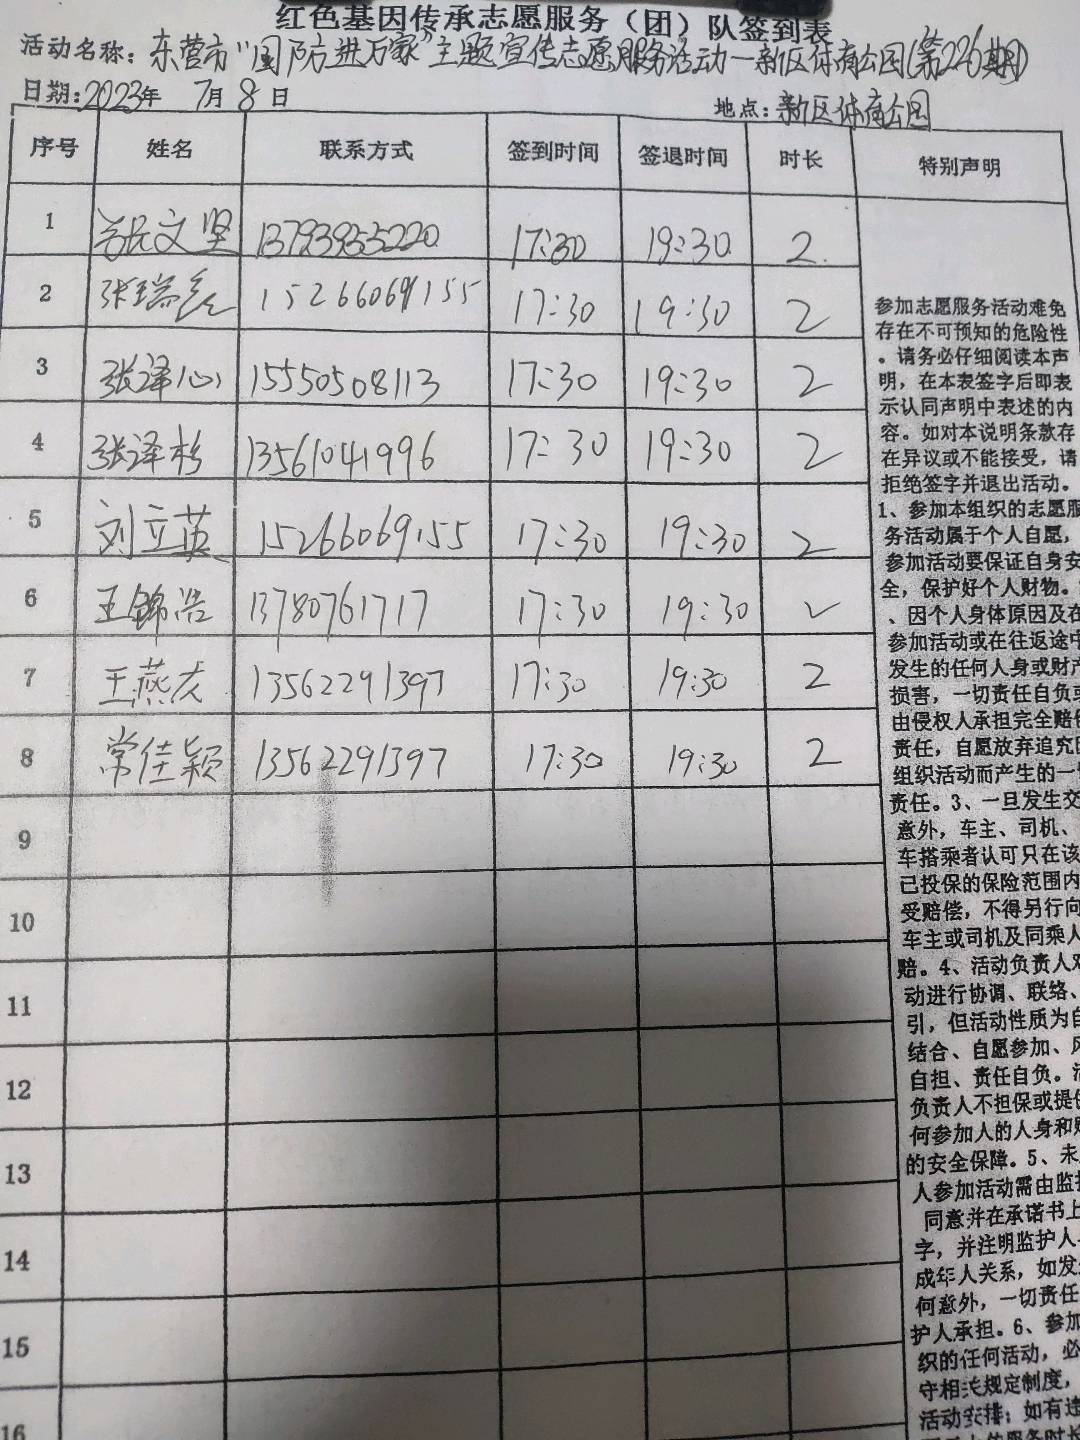 红色基因传承志愿服务（团）队签到表
活动名称：东营市“国防进万家”主题宣传志愿服务活动—新区体育公园(第226期)
日期：2023年 7月 8日 地点：新区体育公园
序号 姓名 联系方式 签到时间 签退时间 时长 特别声明
1 文坚 13793955220 17:30 19:30 2
2 张瑞 15266069155 17:30 19:30 2
3 张泽心 15550508113 17:30 19:30 2
4 张泽杉 13561041996 17:30 19:30 2
5 刘立英 15266069155 17:30 19:30 2
6 王锦浩 13780761717 17:30 19:30 2
7 王燕 13562291397 17:30 19:30 2
8 常佳颖 13562291397 17:30 19:30 2
9
10
11
12
13
14
15
16
参加志愿服务活动难免
存在不可预知的危险性
。请务必仔细阅读本声
明，在本表签字后即表
示认同声明中表述的内
容。如对本说明条款存
在异议或不能接受，请
拒绝签字并退出活动。
1、参加本组织的志愿服
务活动属于个人自愿，
参加活动要保证自身安
全，保护好个人财物。
、因个人身体原因及在
参加活动或在往返途中
发生的任何人身或财产
损害，一切责任自负或
由侵权人承担完全赔偿
责任，自愿放弃追究
组织活动而产生的一
责任。3、一旦发生交
意外，车主、司机、
车搭乘者认可只在该
已投保的保险范围内
受赔偿，不得另行向
车主或司机及同乘人
赔。4、活动负责人对
动进行协调、联络、
引，但活动性质为自
结合、自愿参加、风
自担、责任自负。活
负责人不担保或提供
何参加人的人身和财
的安全保障。5、未
人参加活动需由监护
同意并在承诺书上
字，并注明监护人
成年人关系，如发
何意外，一切责任
护人承担。6、参加
织的任何活动，必
守相关规定制度，
活动安排；如有违